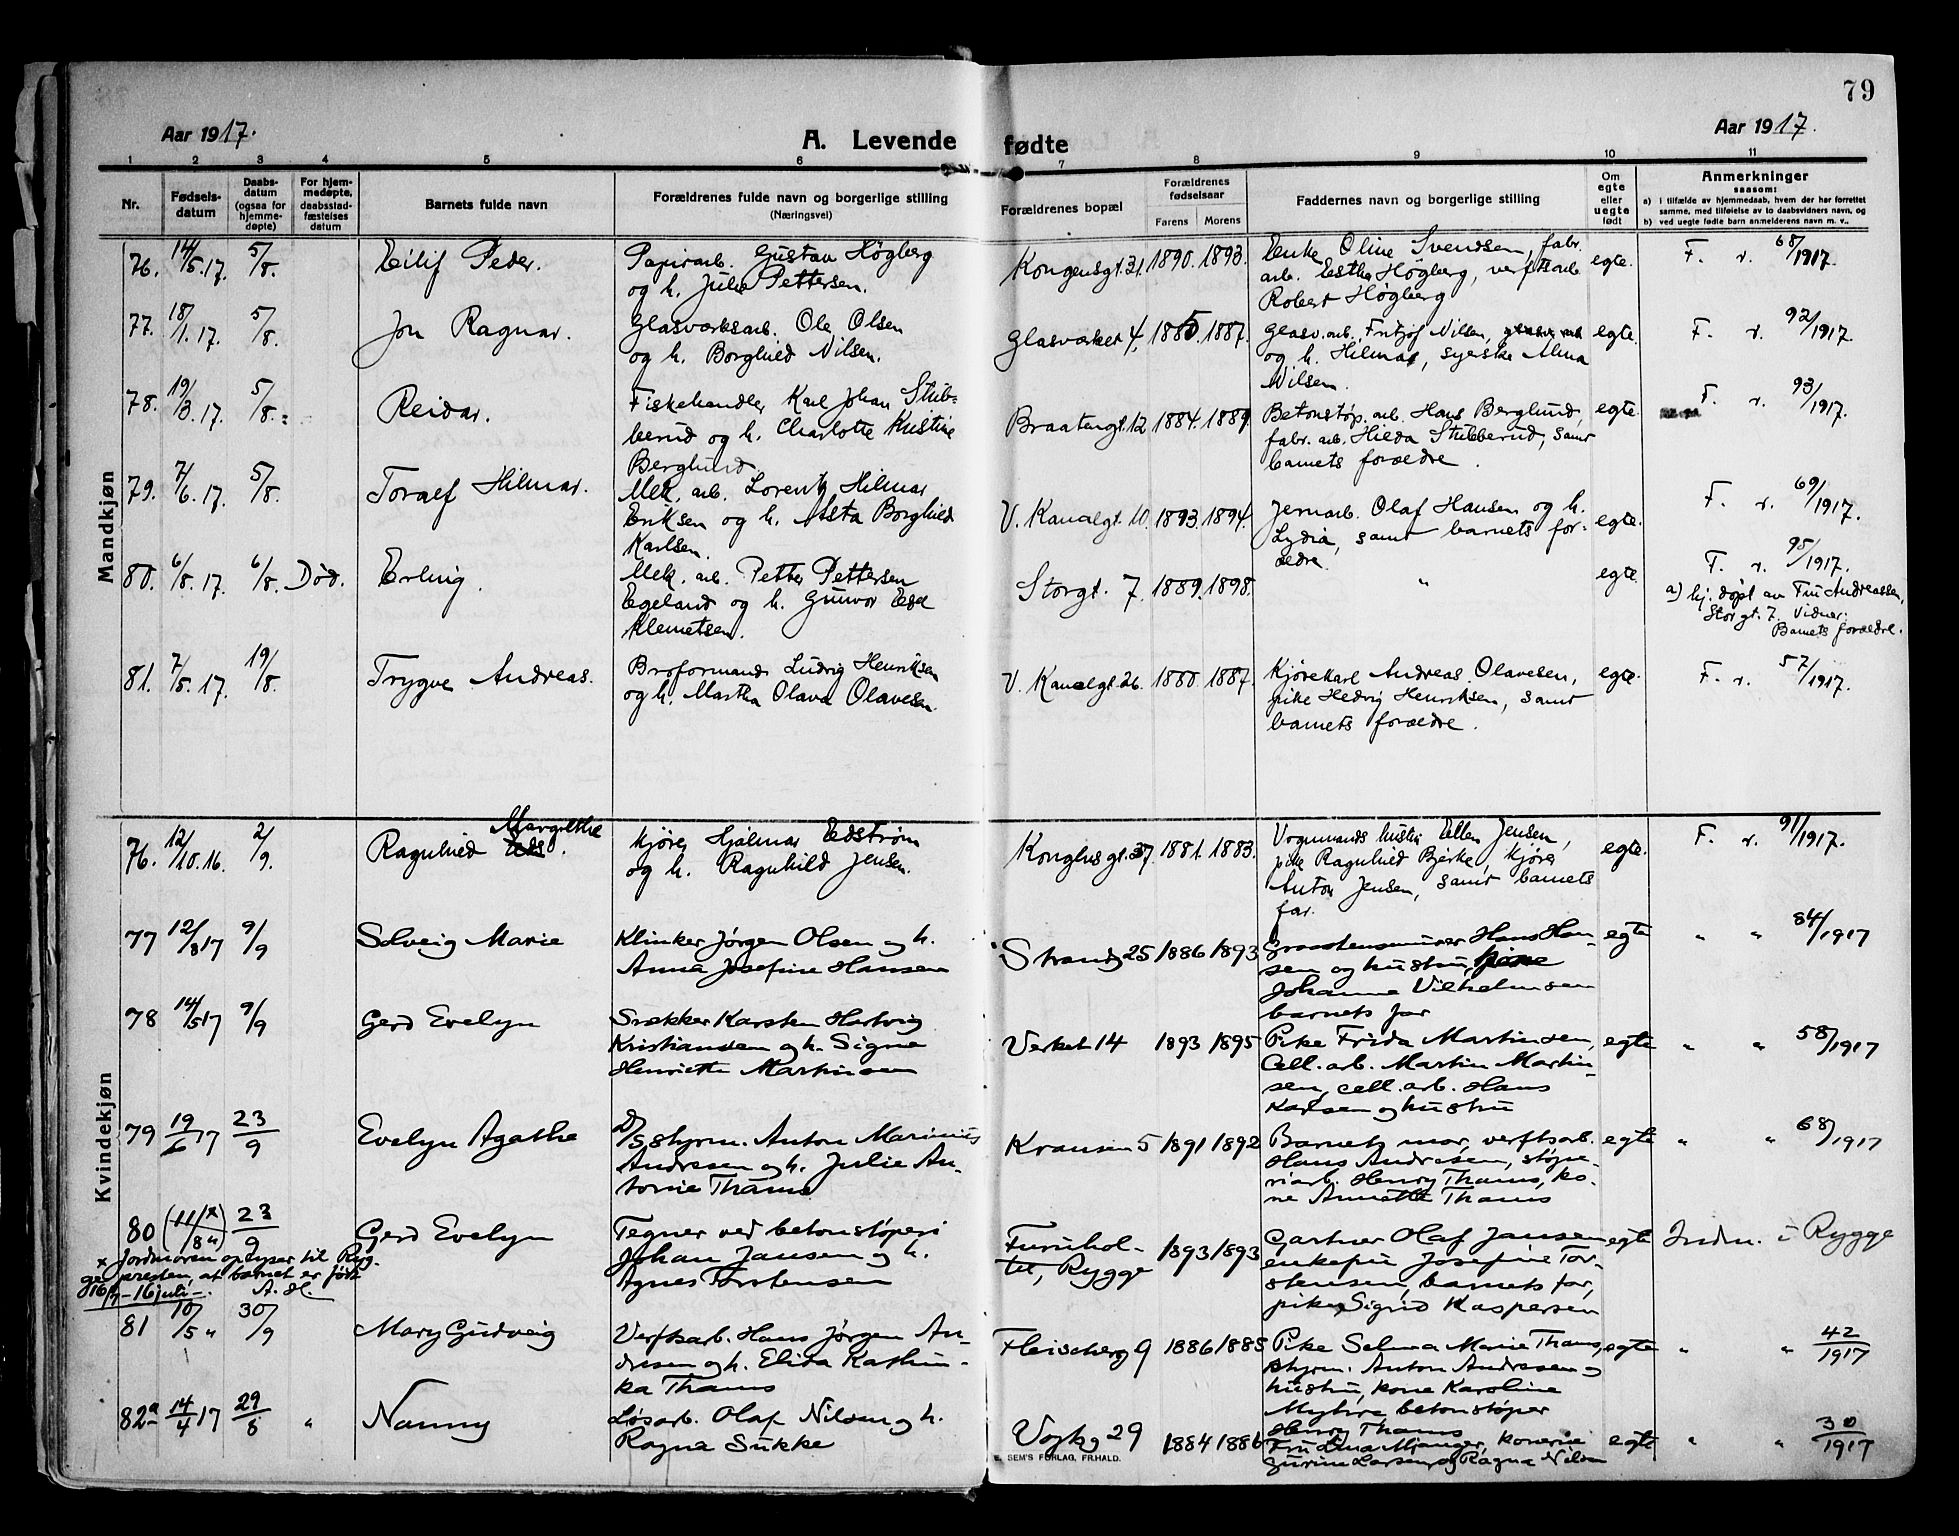 79
Aar 1917.
A. Levende fødte
Aar 1917.
1 2 3 4 5 6 7 8 9 10 11
Nr.
Fødsels-
datum
Daabs-
datum
(ogsaa for
hjemme-
døpte)
For hjem-
medøpte,
daabsstad-
fæstelses
datum
Barnets fulde navn
Forældrenes fulde navn og borgerlige stilling
(Næringsvei)
Forældrenes bopæl
Forældrenes
fødselsaar
Farens Morens
Faddernes navn og borgerlige stilling
Om
egte
eller
uegte
født
Anmerkninger
saasom:
a) i tilfælde av hjemmedaab, hvem der har forrettet
samme, med tilføielse av to daabsvidners navn, og
b) ved uegte fødte barn anmelderens navn m. v.,
Mandkjøn
76. 14/5.17. 5/8. Eilif Peder. Papirarb. Gustav Högberg
og h. Julie Pettersen.
Kongensgt. 31. 1890. 1893.
Enke Oline Svendsen, fabr.
arb. Esther Högberg, verftsarb.
Robert Högberg
egte. F. v. 68/1917.
77. 18/1.17. 5/8. Jon Ragnar. Glasværksarb. Ole Olsen
og h. Borghild Nilsen.
Glasværket 4, 1885. 1887.
Glasv. arb. Fritjof Nilsen,
og h. Hilmar, syerske Alma
Nilsen.
egte. F. v. 92/1917.
78. 19/3.17. 5/8. Reidar. Fiskehandler Karl Johan Stub-
berud og h. Charlotte Kristine
Berglund
Braatengt. 12 1884. 1889.
Betonstøp. arb. Hans Berglund,
fabr. arb. Hilda Stubberud, samt
barnets forældre.
egte. F. v. 93/1917.
79. 7/6.17. 5/8. Toralf Hilmar. Mek. arb. Lorentz Hilmar
Eriksen og h. Asta Borghild
Karlsen.
V. Kanalgt. 10. 1893. 1894.
Jernarb. Olaf Hansen og h.
Lydia, samt barnets for-
ældre.
egte. F. v. 69/1917.
80. 6/8.17. 6/8. Død. Erling. Mek. arb. Petter Pettersen
Egeland og h. Gunvor Edel
Klemetsen.
Storgt. 7. 1889. 1898.
" egte. F. v. 95/1917.
a) hj. døpt av Fru Andreassen,
Storgt. 7. Vidner:
Barnets forældre.
81. 7/5.17. 19/8. Trygve Andreas. Broformand Ludvig Henriksen
og h. Martha Olava Olavesen.
V. Kanalgt. 26. 1880. 1887.
Kjørekarl Andreas Olavesen,
pike Hedvig Henriksen, samt
barnets forældre.
egte. F. v. 57/1917.
Kvindekjøn
76. 12/10.16. 2/9. Ragnhild Margrethe. kjører Hjalmar Edström
og h. Ragnhild Jensen.
Kongensgt. 37 1881. 1883.
Vognmands hustru Ellen Jensen,
pike Ragnhild Bjerke, kjører
Anton Jensen, samt barnets
far.
egte. F. v. 91/1917.
77 12/8 17 9/9 Solveig Marie Klinker Jørgen Olsen og h.
Anna Josefine Hansen
Strandg 25 1886 1893
Graastensmurer Hans Han-
sen og hustru,
Johanne Vilhelmsen
barnets far
egte " " 84/1917
78 14/5 17 9/9 Gerd Evelyn Snekker Karsten Hartvig
Kristiansen og h. Signe
Henriette Martinsen
Verket 14 1893 1895
Pike Frida Martinsen,
Cell. arb. Martin Martin-
sen, cell. arb. Hans
Karlsen og hustru
egte " " 58/1917
79 19/6 17 23/9 Evelyn Agathe D/S styrm. Anton Marinius
Andresen og h. Julie An-
tonie Thams
Kransen 5 1891 1892
Barnets mor, verftsarb.
Hans Andresen, støpe-
riarb. Henry Thams, ko-
ne Annette Thams
egte " " 68/1917
80 (11/8 ") x 23/9 Gerd Evelyn Tegner ved betonstøperi
Johan Jansen og h.
Agnes Torstensen
Furuhol-
tet, Rygge 1893 1893
Gartner Olaf Jansen
enkefru Josefine Tor-
stensen, barnets far,
pike Sigrid Kaspersen
egte Indm. i Rygge
x Jordmoren oplyser til Ryg-
ge presten, at barnet er født
16/7 – 16 juli –. A. H.
81 10/5 " 30/9 Mary Gudveig Verftsarb. Hans Jørgen An-
dresen og h. Elida Kathin-
ka Thams
Fleischerg 9 1886 1885
Pike Selma Marie Thams,
styrm. Anton Andresen og
hustru, kone Karoline
Myhre betonstøper
Henry Thams
egte " " 42/1917
82a 14/4 17 29/8 " Nanny Løsarb. Olaf Nilsen og h.
Ragna Sukke
Vogtsg 29 1884 1886
Fru Lina Manger, konerne
Gurine Larsen og Ragna Nilsen
egte " " 30/1917
E. SEM'S FORLAG, FR.HALD.